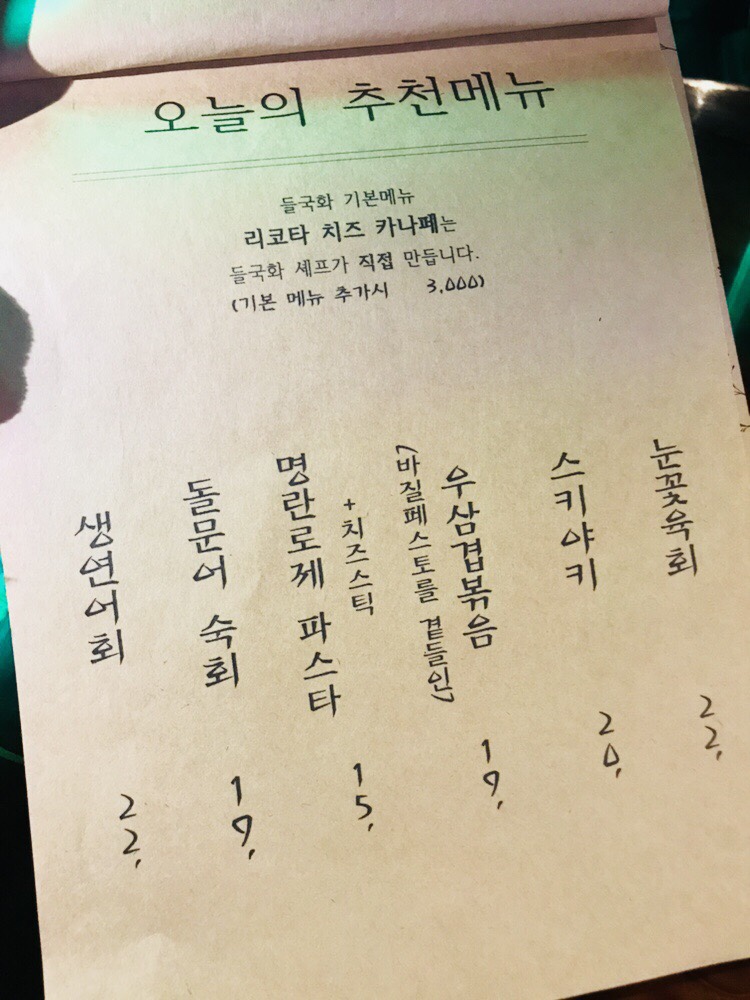 오늘의 추천메뉴
들국화 기본메뉴
리코타 치즈 카나페는
들국화 셰프가 직접 만듭니다.
(기본 메뉴 추가시 3,000)
눈꽃육회 22,
스키야키 20,
우삼겹볶음 19,
(바질페스토를 곁들인)
명란로제 파스타 15,
+치즈스틱
돌문어 숙회 19,
생연어회 22,